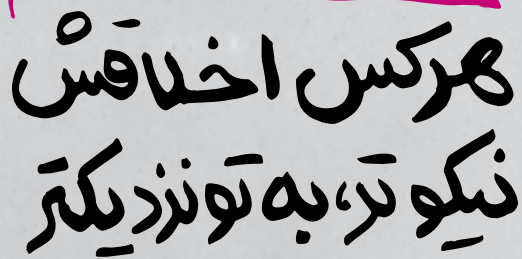 هرکس اخلاقش
نیکوتر، به تو نزدیکتر